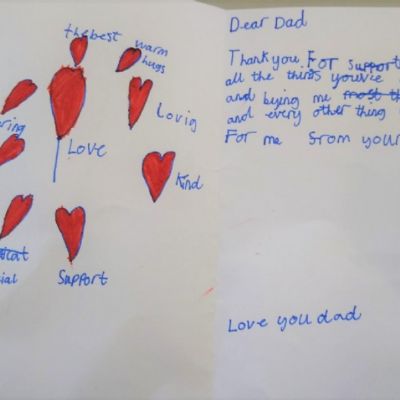 the best
warm
hugs
Loving
ring
Love
Kind
Support
ial
Dear Dad
Thank you For support
all the things you'vie
and buying me
and every other thing
For me from your
Love you dad